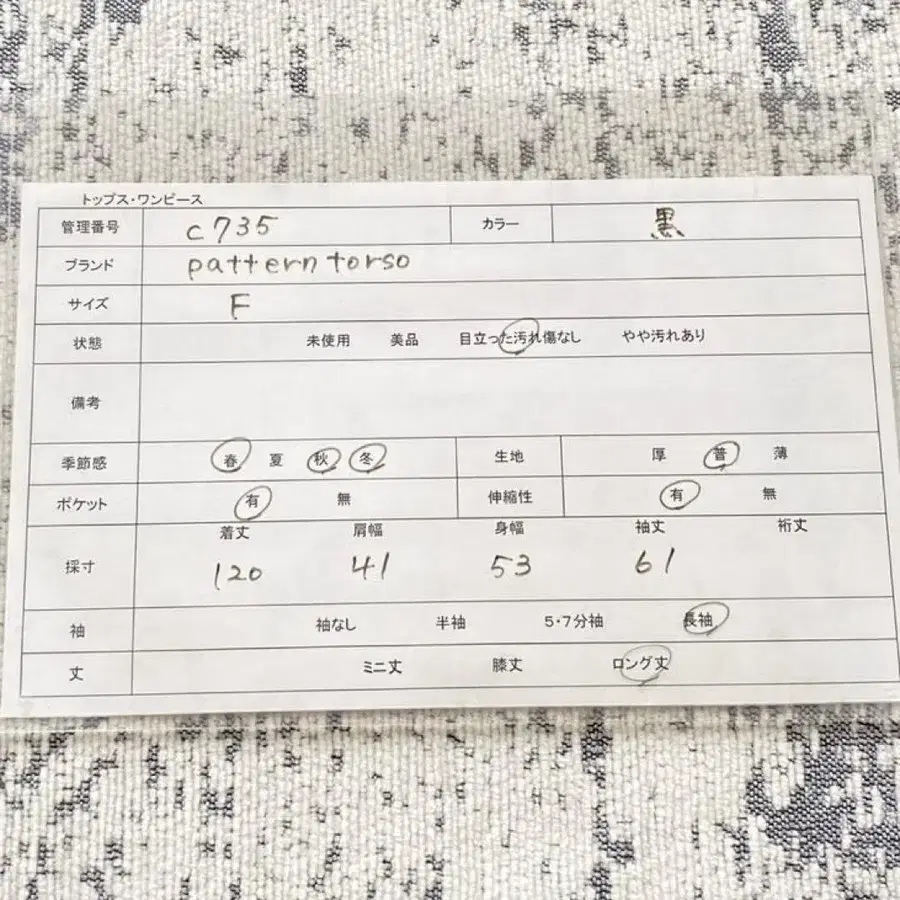 トップス・ワンピース
管理番号 c735 カラー 黒
ブランド pattern torso
サイズ F
状態 未使用 美品 目立った汚れ傷なし やや汚れあり
備考
季節感 春 夏 秋 冬 生地 厚 普 薄
ポケット 有 無 伸縮性 有 無
着丈 肩幅 身幅 袖丈 裄丈
採寸 120 41 53 61
袖 袖なし 半袖 5・7分袖 長袖
丈 ミニ丈 膝丈 ロング丈